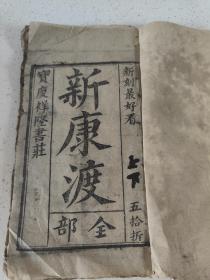 新刻最好看
上下
五拾折
新康渡
全部
寶慶祥隆書莊